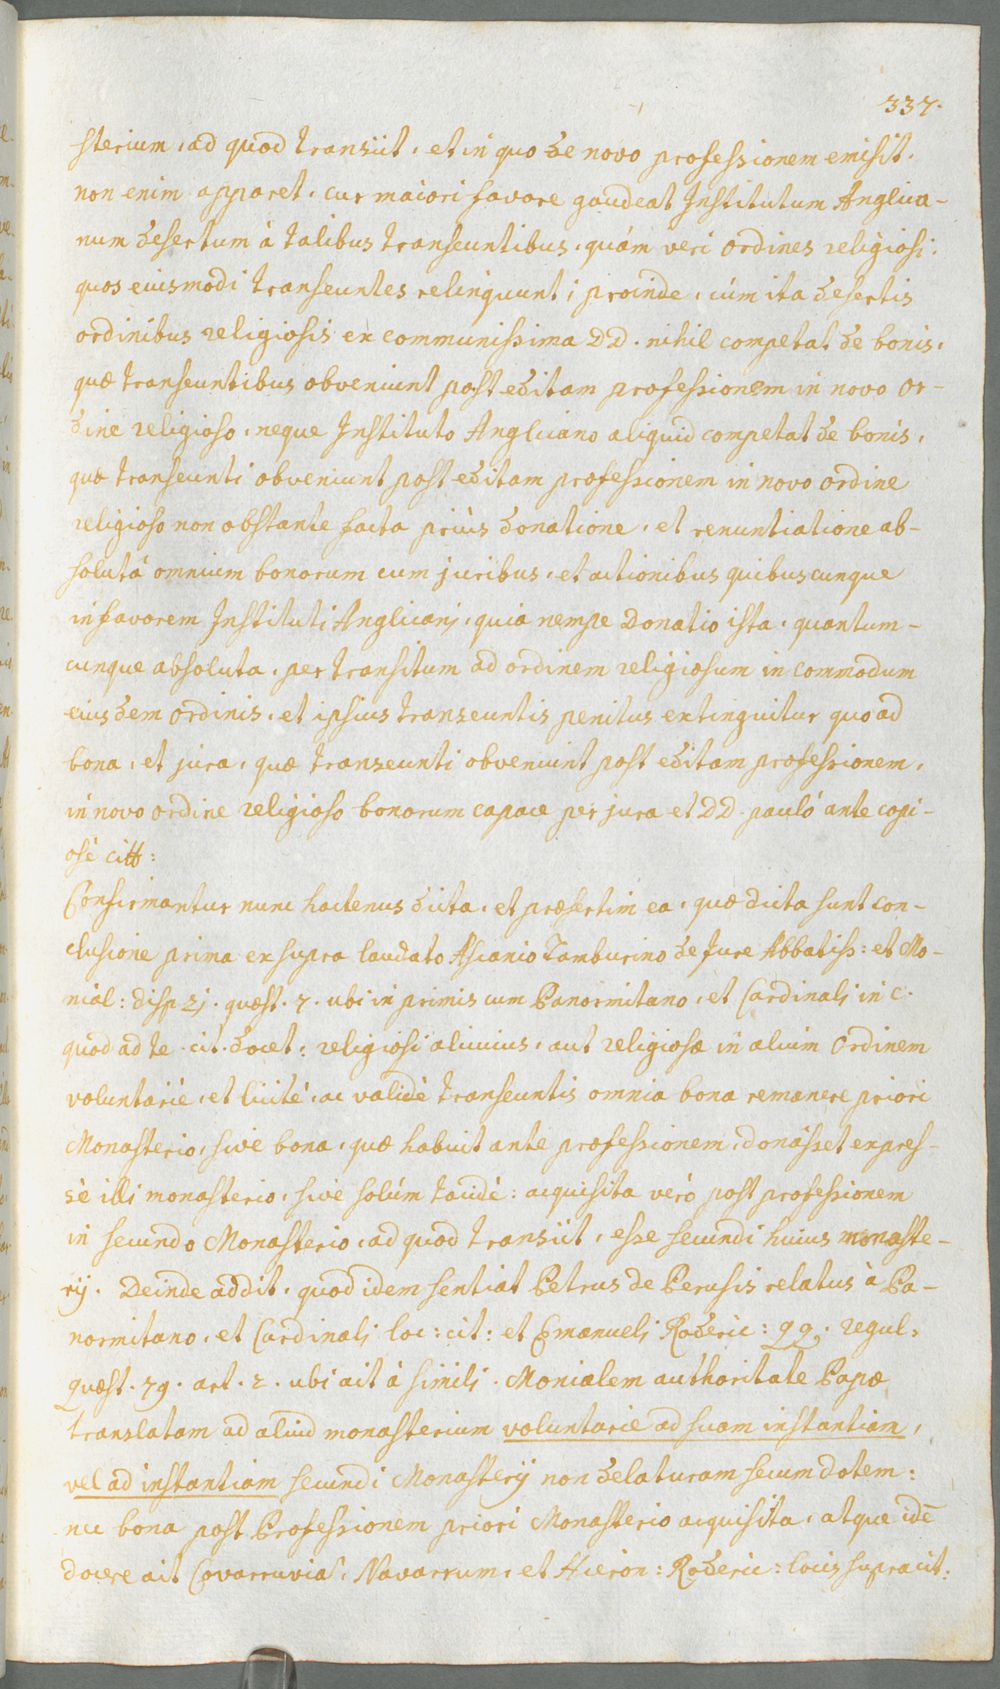 337.
sterium, ad quod transiit, et in quo de novo professionem emisit.
non enim apparet, cur maiori favore gaudeat Institutum Anglica-
num desertum à talibus transeuntibus, quám veri ordines religiosi,
quos eiusmodi transeuntes relinquunt; proinde, cúm ita desertis
ordinibus religiosis ex communissima DD. nihil competat de bonis,
quæ transeuntibus obveniunt post editam professionem in novo or-
dine religioso, neque Instituto Anglicano aliquid competat de bonis,
quæ transeunti obveniunt post editam professionem in novo ordine
religioso non obstante facta priùs donatione, et renuntiatione ab-
solutâ omnium bonorum cum juribus, et actionibus quibuscunque
in favorem Instituti Anglicani, quia nempe Donatio ista, quantum-
cunque absoluta, per transitum ad ordinem religiosum in commodum
eiusdem ordinis, et ipsius transeuntis penitus extinguitur quo ad
bona, et jura, quæ transeunti obveniunt post editam professionem,
in novo ordine religioso bonorum capace per jura et DD. pauló ante copi-
osè citt:
Confirmantur nunc hactenus dicta, et præsertim ea, quæ dicta sunt con-
clusione prima ex supra laudato Ascanio Tamburino de Jure Abbatiss: et Mo-
nial: disp 21. quæst. 7. ubi in primis cum Panormitano, et Cardinali in c.
quod ad te. cit. docet: religiosi alicuius, aut religiosæ in alium Ordinem
voluntariè, et licitè, ac validè transeuntis omnia bona remanere priori
Monasterio, sive bona, quæ habuit ante professionem, donâsset expres-
sè illi monasterio, sive solúm tacidè: acquisita verò post professionem
in secundo Monasterio, ad quod transiit, esse secundi huius monaste-
rij. Deinde addit, quod idem sentiat Petrus de Perusis relatus à Pa-
normitano, et Cardinali loc: cit: et Emanueli Roderic: qq. regul,
quæst. 79. art. 2. ubi ait à simili. Monialem authoritate Papæ
translatam ad aliud monasterium voluntarie ad suam instantiam,
vel ad instantiam secundi Monasterij non delaturam secum dotem:
nec bona post Professionem priori Monasterio acquisita, atque idē
docere ait Covarruvia, Navarrum, et Hieron: Roderic: locis supra cit: